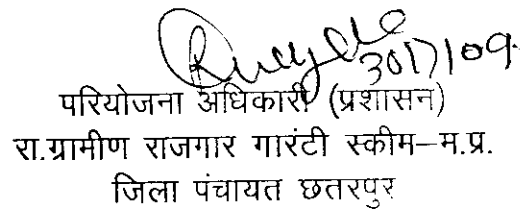 30/7/09
परियोजना अधिकारी (प्रशासन)
रा.ग्रामीण राजगार गारंटी स्कीम–म.प्र.
जिला पंचायत छतरपुर